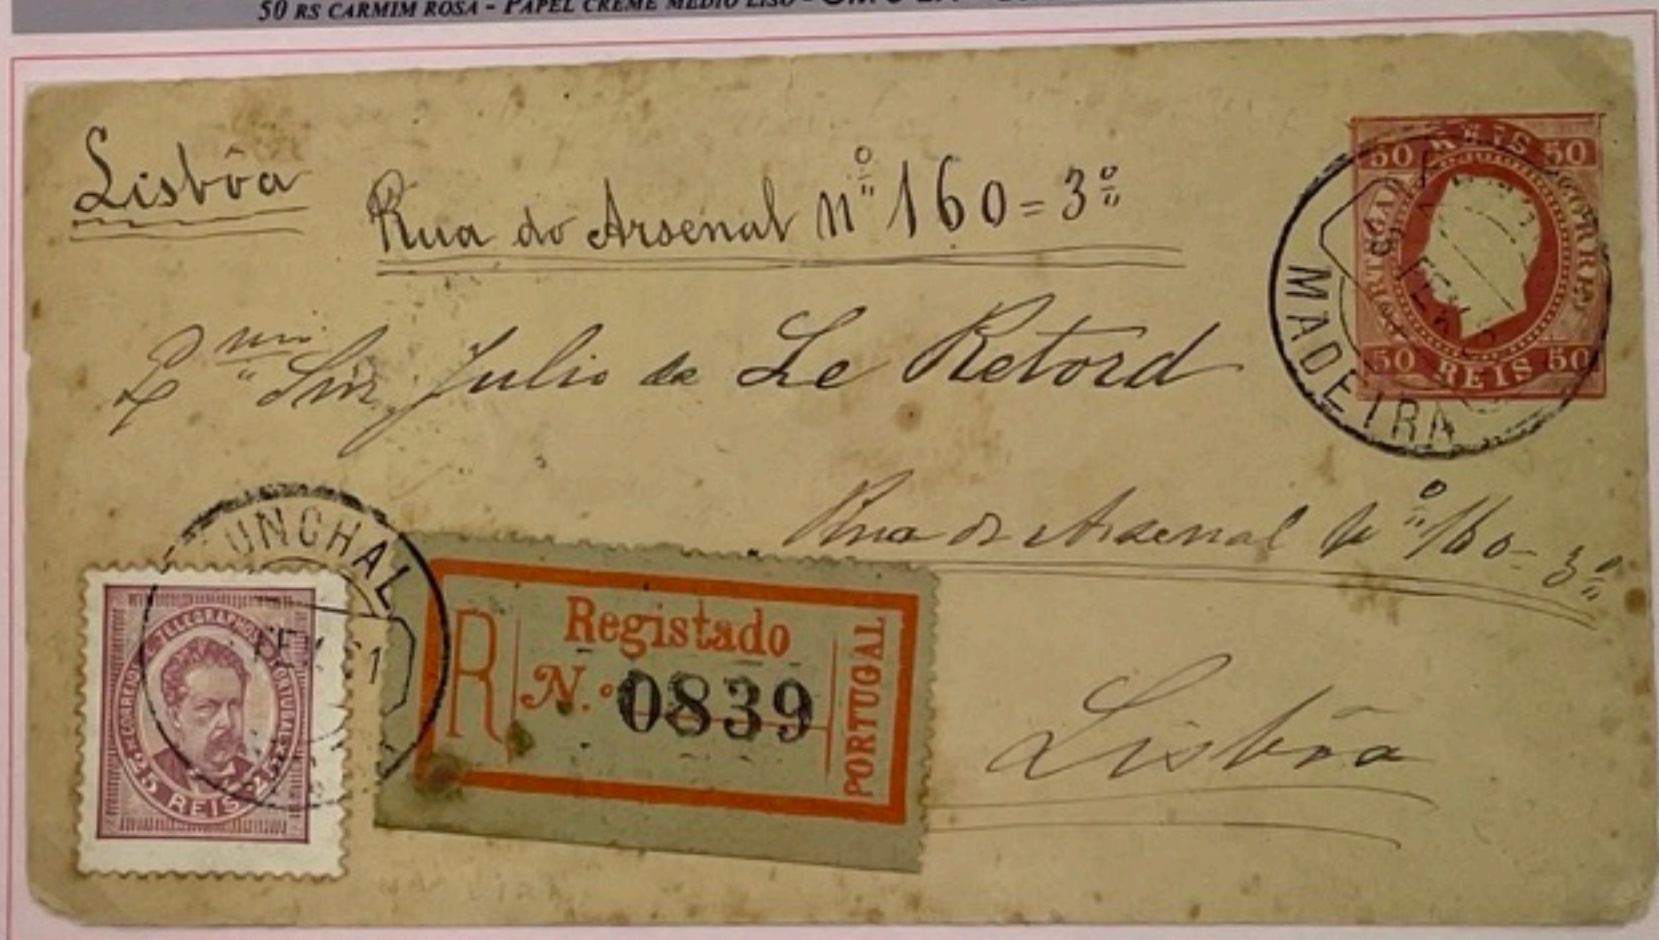 50 RS CARMIM ROSA - PAPEL CREME MÉDIO LISO -
Lisbôa
Rua do Arsenal nº 160 = 3º
Julio de Le Retord
Rua do Arsenal Nº 160 - 3º
Lisbôa
50 REIS 50
PORTUGAL
CORREIO
50 REIS 50
MADEIRA
FUNCHAL
CORREIOS E TELEGRAPHOS PORTUGAL
25 REIS 25
R
Registado
N.º 0839
PORTUGAL